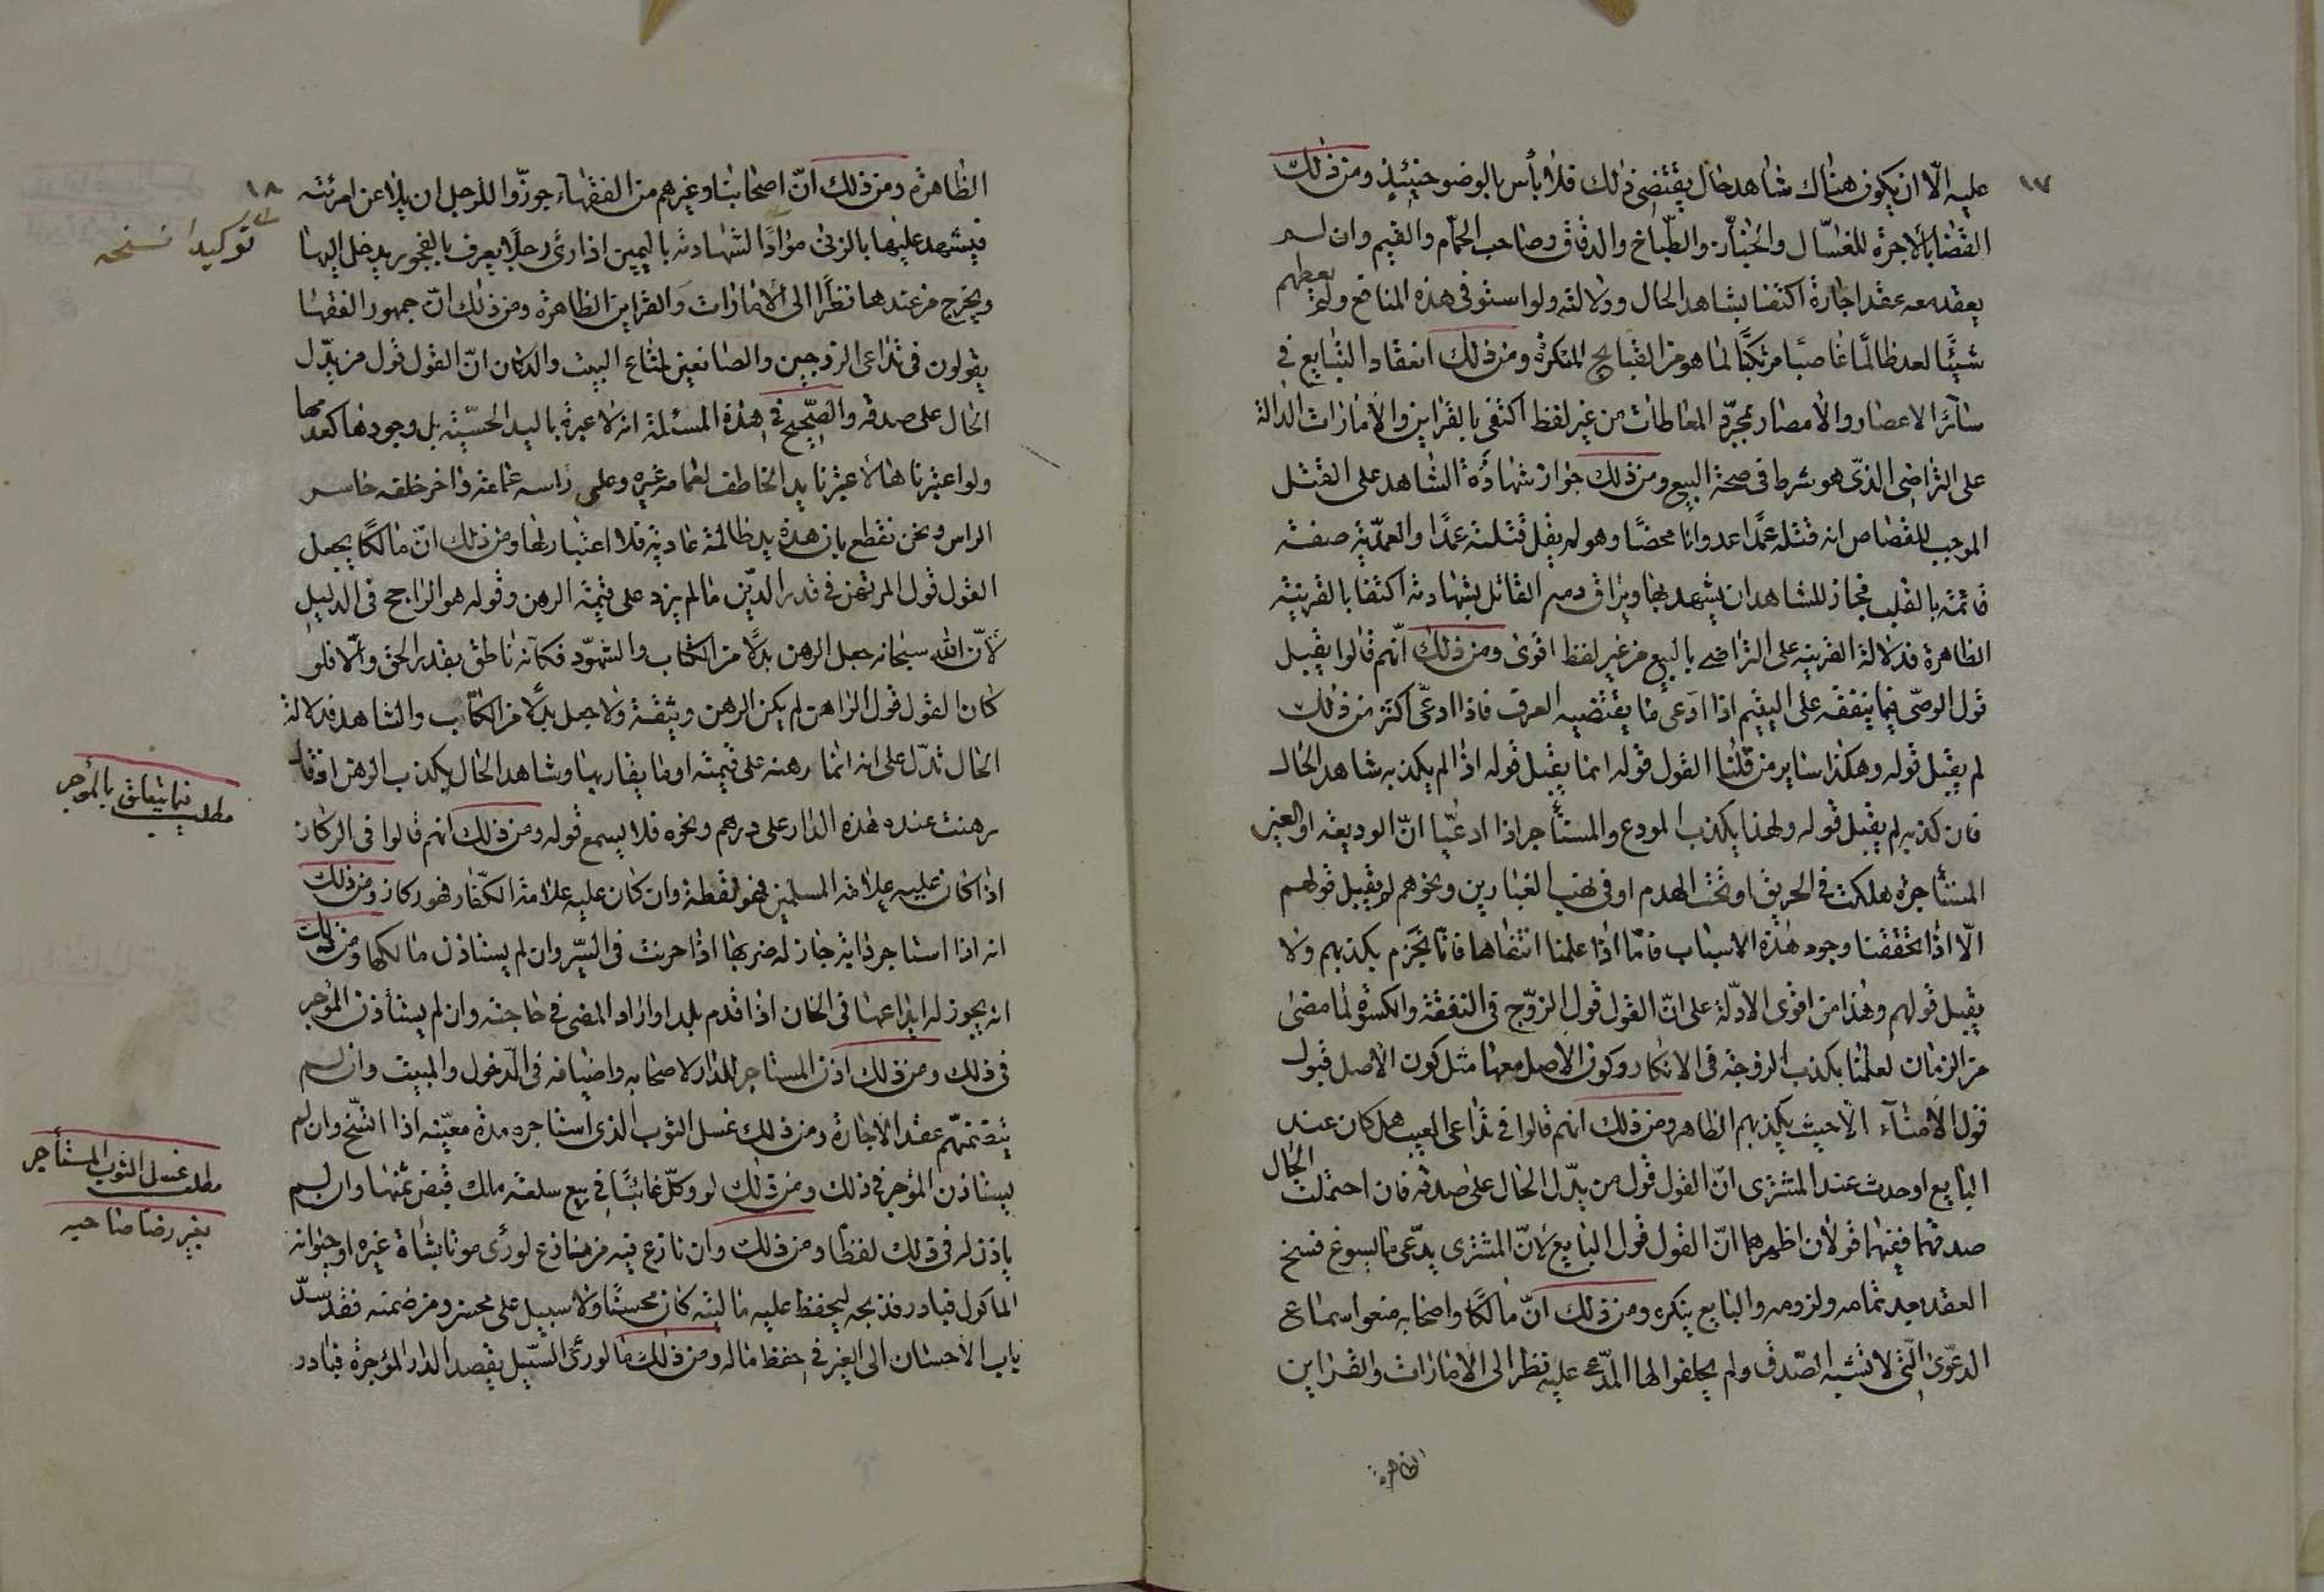 ١٧
عليه الّا ان يكون هناك شاهد حال يقتضى ذلك فلا بأس بالوضو حينئذٍ ومن ذلك
القضا بالاجرة للغسّال والخبّاز والطّباخ والدقاق وصاحب الحمّام والقيم وان لم
يعقد معه عقد اجارة اكتفا بشاهد الحال ودلالته ولو استوفى هذه المنافع ولم يعطهم
شيئًا لعد ظالمًا غاصبًا مرتكبًا لما هو من القبايح المنكرة ومن ذلك انعقاد التبايع فى
سائر الاعصار والامصار بمجرّد المعاطات من غير لفظ اكتفى بالقراين والامارات الدالة
على التراضى الذّى هو شرط فى صحة البيع ومن ذلك جواز شهادة الشاهد على القتل
الموجب للقصاص انه قتله عمدًا عدوانا محضًا وهو لم يقل قتلته عمدًا والعمدّية صفة
قائمة بالقلب فجاز للشاهد ان يشهد بها ويراق دم القاتل بشهادته اكتفا بالقرينة
الظاهرة فدلالة القرينة على التراضى بالبيع من غير لفظ اقوى ومن ذلك انّهم قالوا يقبل
قول الوصّى فيما ينفقه على اليتيم اذا ادّعى ما يقتضيه العرف فاذا ادعّى اكثر من ذلك
لم يقبل قوله وهكذا ساير من قلنا القول قوله انما يقبل قوله اذا لم يكذبه شاهد الحال
فان كذبه لم يقبل قوله ولهذا يكذب المودع والمستأجر اذا ادعيّا انّ الوديعة او العين
المستأجرة هلكت فى الحريق او تحت الهدم او فى نهب العيارين ونحوهم لم يقبل قولهم
الّا اذا تحققنا وجود هذه الاسباب فامّا اذا علمنا انتفاها فانّا نجزم بكذبهم ولا
يقبل قولهم وهذا من اقوى الادلّة على انّ القول قول الزوّج فى النفقة والكسوة لما مضى
من الزمان لعلمنا بكذب الزوجة فى الانكار وكون الاصل معها مثل كون الاصل قبول
قول الأمناء الّا حيث يكذبهم الظاهر ومن ذلك انهم قالوا فى تداعى العيب هل كان عند
البايع او حدث عند المشترى انّ القول قول من يدّل الحال على صدقه فان احتملت الحال
صدقهما ففيهما قولان اظهرهما انّ القول قول البايع لانّ المشترى يدّعى ما يسوغ فسخ
العقد بعد تمامه ولزومه والبايع ينكره ومن ذلك انّ مالكًا واصحابه منعوا سماع
الدعوّى التّى لا تشبه الصّدق ولم يحلفوا لها المدّعى عليه نظر الى الامارات والقراين
الظاهرة
١٨
الظاهرة ومن ذلك انّ اصحابنا وغيرهم من الفقهاء جوزّوا للرجل ان يلاعن امرئته
فيشهد عليها بالزنى موكدًا لشهادته باليمين اذا رئ رجلًا يعرف بالفجور يدخل اليها
ويخرج من عندها نظرًا الى الامارات والقراين الظاهرة ومن ذلك انّ جمهور الفقها
يقولون فى تداعى الزوجين والصانعين لمتاع البيت والدكان انّ القول قول من يدّل
الحال على صدقه والصّحيح فى هذه المسئلة انه لا عبرة باليد الحسّية بل وجودها كعدمها
ولو اعتبرناها لاعتبرنا يد الخاطف لعمامة غيره وعلى راسه عمامة واخر خلفه حاسر
الراس ونحن نقطع بان هذه يد ظالمة عادية فلا اعتبار لها ومن ذلك انّ مالكًا يجعل
القول قول المرتهن فى قدر الدّين ما لم يزد على قيمة الرهن وقوله هو الراجح فى الدليل
لانّ الله سبحانه جعل الرهن بدلًا من الكتاب والشهوّد فكأنه ناطق بقدر الحق والّا فلو
كان القول قول الراهن لم يكن الرهن وثيقة ولا جعل بدلًا من الكتاب والشاهد فدلالة
الحال تدّل على انه انما رهنه على قيمته او ما يقاربها وشاهد الحال يكذب الرهن اذ قال
رهنت عنده هذه الدار على درهم ونحوه فلا يسمع قوله ومن ذلك انهم قالوا فى الركاز
اذا كان عليه علامة المسلمين فهو لقطة وان كان عليه علامة الكفّار فهو ركاز ومن ذلك
انه اذا استاجر دابة جاز له ضربها اذا حرنت فى السّير وان لم يستاذن مالكها ومن ذلك
انه يجوز له ايداعها فى الخان اذا قدم بلدا واراد المضى فى حاجته وان لم يستأذن المؤجر
فى ذلك ومن ذلك اذن المستاجر للدار لاصحابه واضيافه فى الدّخول والمبيت وان لم
يتضمنهم عقد الاجارة ومن ذلك غسل الثوب الذى استاجره مدة معيّنه اذا اتسّخ وان لم
يستاذن المؤجر فى ذلك ومن ذلك لو وكلّ غائبًا فى بيع سلعة ملك قبض ثمنها وان لم
ياذن له فى ذلك لفظا ومن ذلك وان نازع فيه من نازع لو رئ موتا بشاة غيره او حيوانه
الماكول فبادر فذبحه ليحفظ عليه ماليته كان محسنًا ولا سبيل على محسن ومن ضمنه فقد سدّ
باب الاحسان الى الغير فى حفظ ماله ومن ذلك ما لو رئ السّيل يقصد الدار المؤجرة فبادر
توكيدا نسخه
مطلب فيما يتعلق بالمؤجر
مطلب غسل الثوب المستأجر
بغير رضا صاحبه